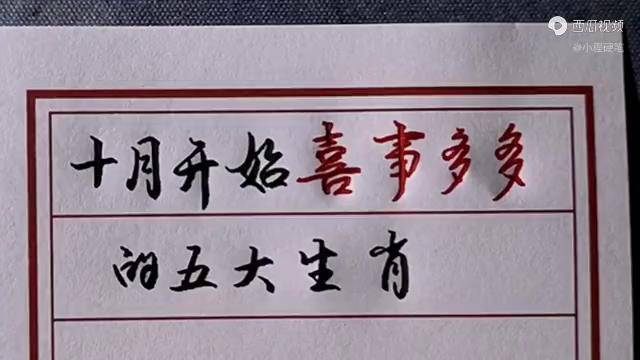 西瓜视频
@小程硬笔
十月开始喜事多多
的五大生肖